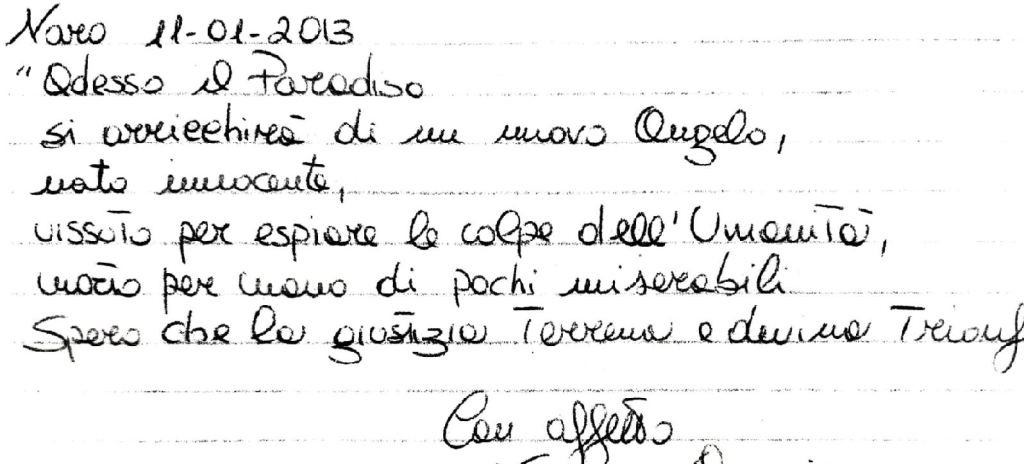 Naro 11-01-2013
"Adesso il Paradiso
si arricchirà di un nuovo Angelo,
nato innocente,
vissuto per espiare le colpe dell'Umanità,
morto per mano di pochi miserabili
Spero che la giustizia Terrena e divina Trionf
Con affetto